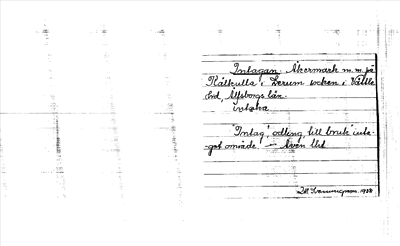 Intagan. Åkermark m. m. på
Kålkulla i Lerum socken i Vättle
hd, Älfsborgs län.
intaka
"Intag, odling, till bruk inta-
get område. — Även Utd.
1928